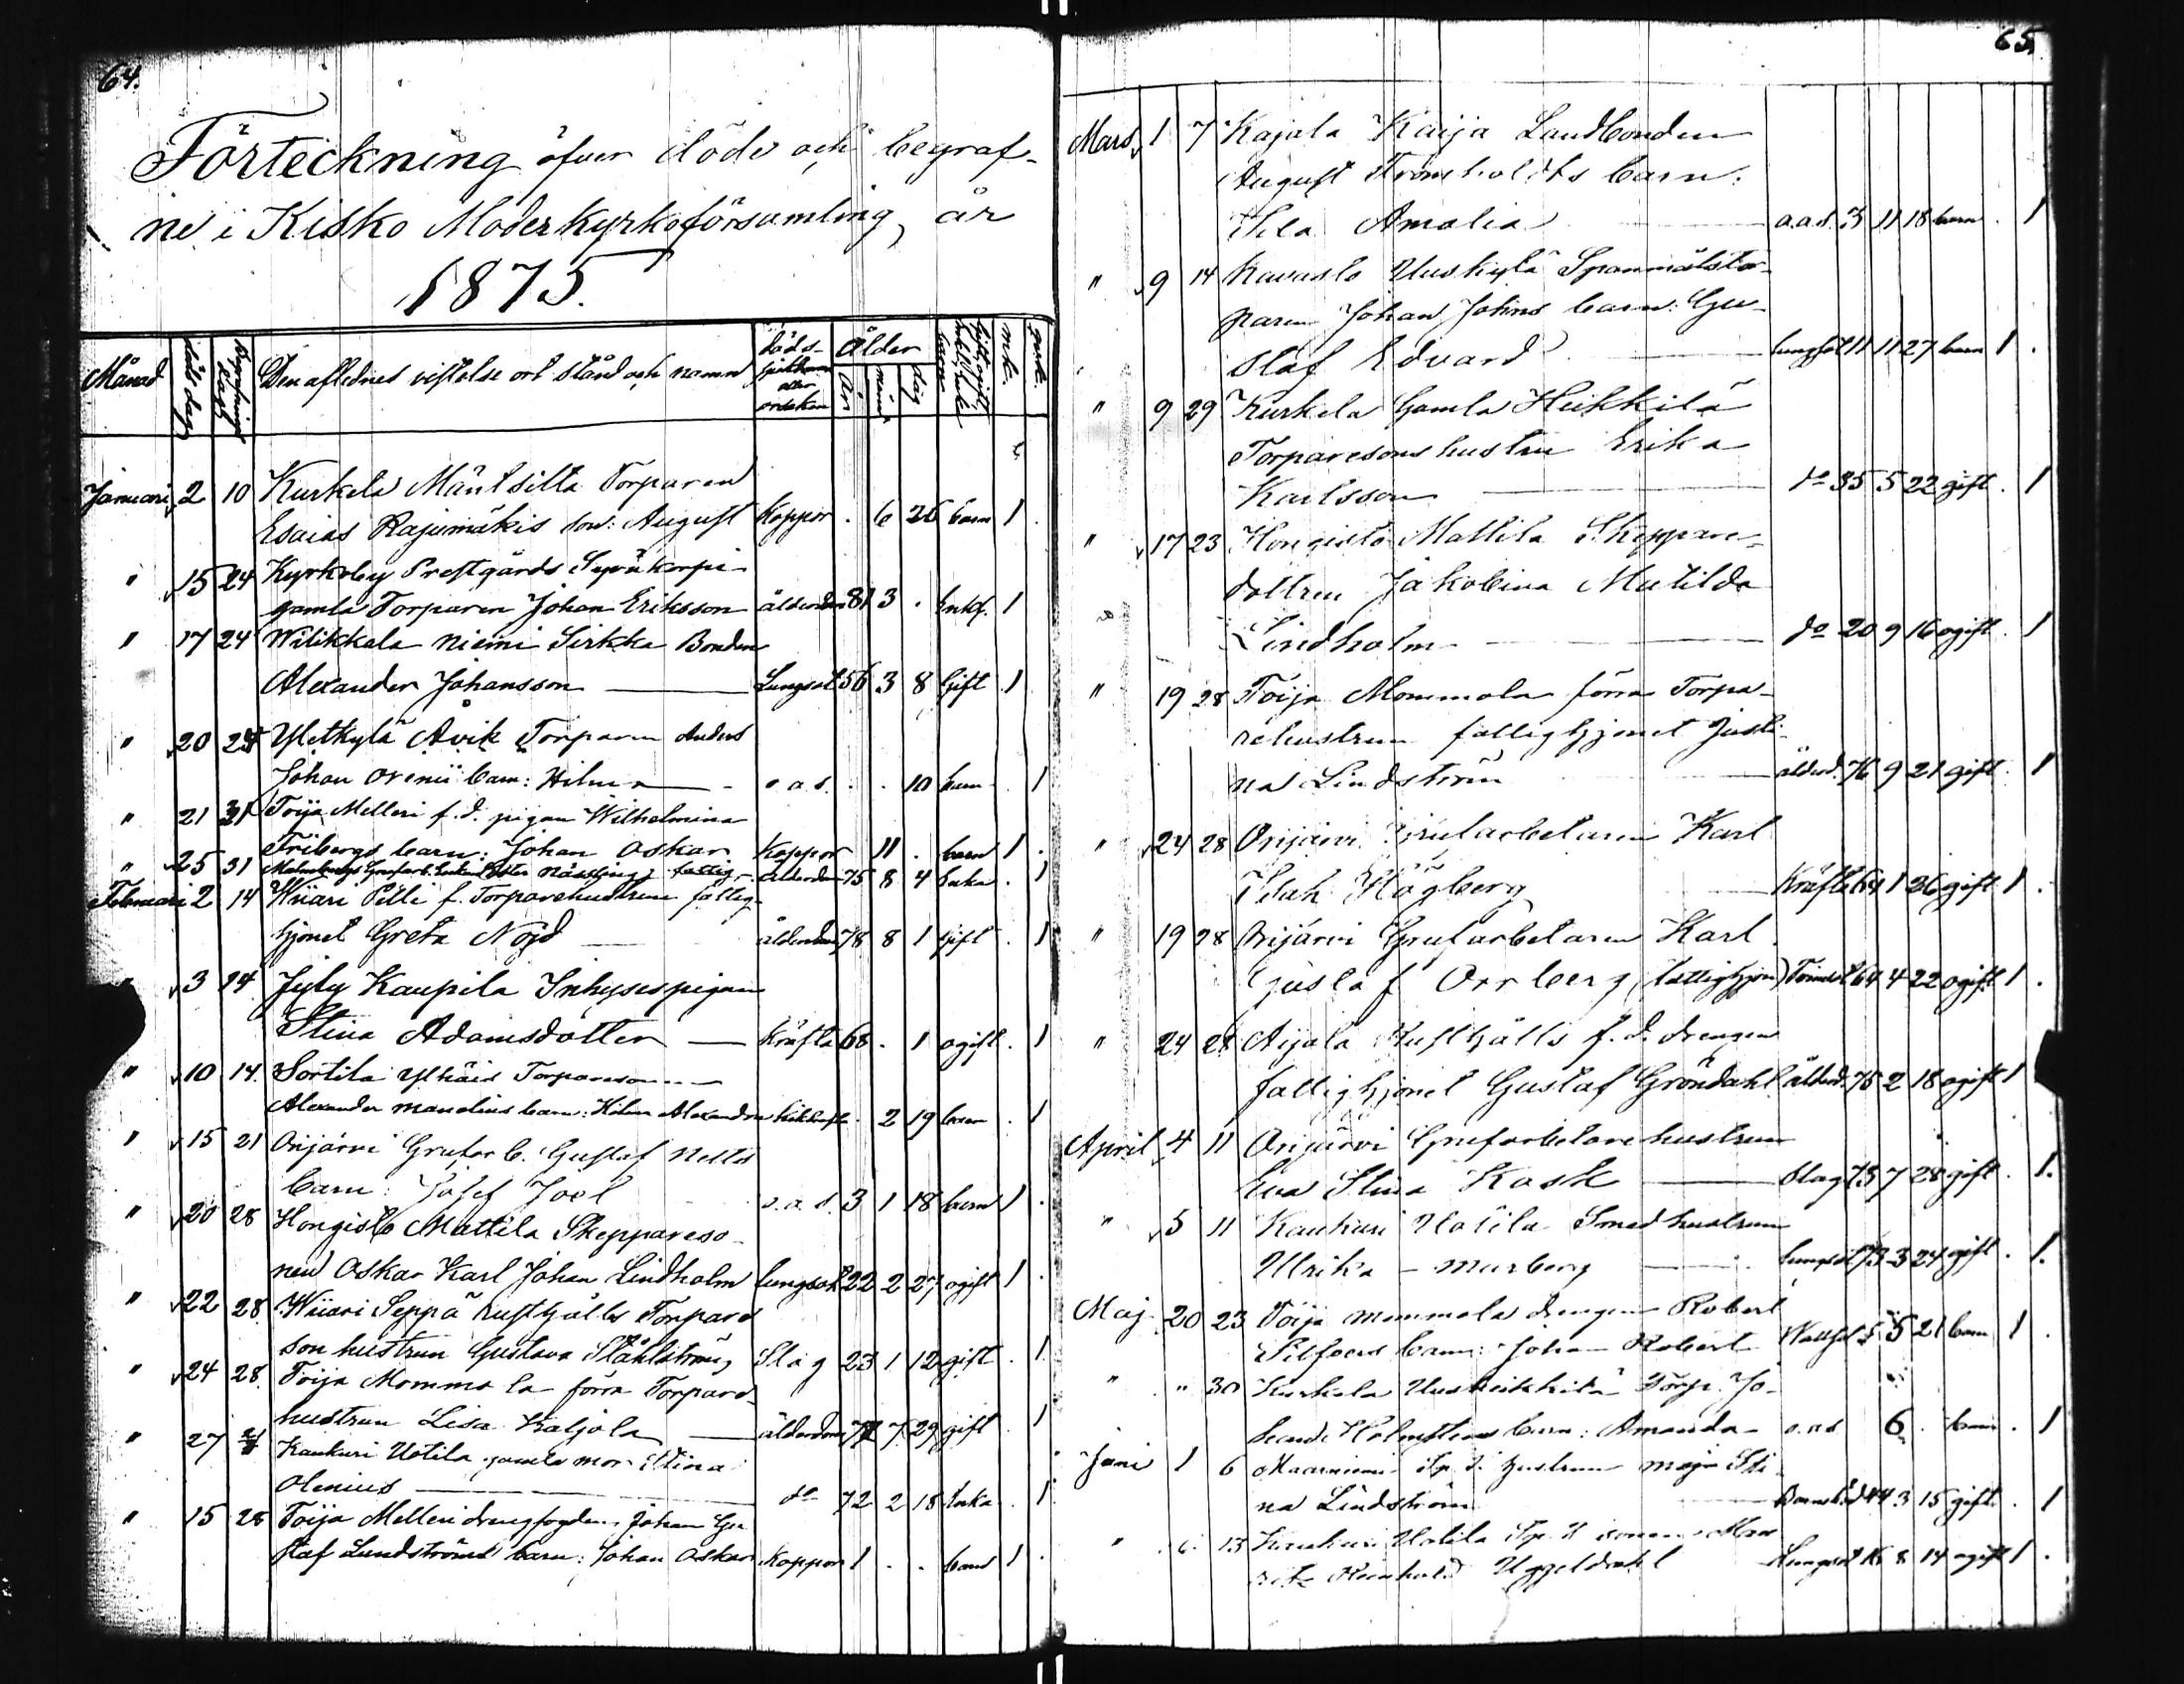 64.
Förteckning öfver döde och begraf-
ne i Kisko Moderkyrkoförsamling, år
1875.
Månad döds dag Begrafnings dag Den aflednes vistelse ort stånd och namn döds- sjukdom eller orsaken Ålder år mån dag mk. qvk.
Januari 2 10 Kurkela Mäntsilta Torparen
Esaias Rajamäkis son: August Koppor . 6 26 barn 1 .
" 15 24 Kyrkoby Prestgårds Syväkorpi
gamla Torparen Johan Eriksson ålderdom 81 3 . Enkl. 1
" 17 24 Wilikkala Niemi Sirkka Bonden
Alexander Johansson Lungsot 56 3 8 Gift 1
" 20 24 Yletkylä Åvik Torparen Anders
Johan Orenii barn: Hilma o.a.s. . . 10 barn . 1
" 21 31 Toija Melleri f.d. pigan Wilhelmina
Fribergs barn: Johan Oskar Koppor 11 . barn 1 .
" 25 31 ålderdom 75 8 4 Enka . 1
Februari 2 14 Wiiari Pilli f. Torparehustrun fattig-
hjonet Greta Nöjd ålderdom 78 8 1 Gift . 1
" 3 14 Jyly Kaupila Inhysespigan
Stina Adamsdotter Kräfta 68 . 1 ogift . 1
" 10 14. Sortila Torpareson
Alexander Manelius barn: Hilma Alexandra Kikhosta . 2 19 barn . 1
" 15 21 Orijärvi Grufarb. Gustaf
barn: Josef Joel o.a.s. 3 1 18 barn 1 .
" 20 28 Hongisto Mattila Skeppareso-
nen Oskar Karl Johan Lindholm Lungsot 22 2 27 ogift 1 .
" 22 28. Wiiari Seppä Rusthålls Torpare
sonhustrun Gustava Ståhlström, Slag 23 1 12 gift . 1
" 24 28. Toija Mommola förra Torpare
hustrun Lisa Kaljola ålderdom 7 29 gift 1
" 27 Kaukuri Uotila gamla mor Stina
Olenius do 72 2 18 Enka . 1
" 15 28 Toija Melleri drengfogden Johan Gu-
staf Lundströms barn: Johan Oskar Koppor 1 . . barn 1 .
65.
Mars 1 7 Kajala Kaija Landbonden
August Fromholdts barn:
Ida Amalia o.a.s. 3 11 18 barn . 1
" 9 14 Kavasto Uuskylä Spanmålstor-
paren Johan Johns barn: Gu-
staf Edvard Lungsot 11 11 27 barn 1 .
" 9 29 Kurkela Gamla Heikkilä
Torparesons hustru Erika
Karlsson do 35 5 22 gift . 1
" 17 23 Hongisto Mattila Skeppare-
dottren Jakobina Matilda
Lindholm do 20 9 16 ogift . 1
" 19 28 Toija Mommola förra Torpa-
rehustrun fattighjonet Justi-
na Lindström ålderd. 76 9 21 gift . 1
" 24 28 Orijärvi Grufarbetaren Karl
Isak Högberg Kräfta 64 1 26 gift 1 .
" 19 28 Orijärvi Grufarbetaren Karl
Gustaf Orrberg (fattighjon) 64 4 22 ogift 1 .
" 24 28 Aijala Rusthålls f.d. drengen
fattighjonet Gustaf Gröndahl ålderd. 75 2 18 ogift 1
April 4 11 Orijärvi Grufarbetare hustrun
Eva Stina Kask Slag 73 7 28 gift . 1.
" 5 11 Kaukuri Uotila Smedhustrun
Ulrika Murberg Lungsot 73 3 24 gift . 1.
Maj 20 23 Toija Mommola drengen Robert
Silfvers barn: Johan Robert Wattsot 5 5 21 barn 1 .
" " 30 Kurkela Uusheikkilä Torp. Jo-
hande Holmstens barn: Amanda o.a.s 6 . barn . 1
Juni 1 6 hustrun Maja Sti-
na Lindström Barnsbörd 44 3 15 gift . 1
" 6 13 Kaukuri Uotila sonen Mau
ritz Reinhold Uggeldahl Lungsot 8 14 ogift 1 .